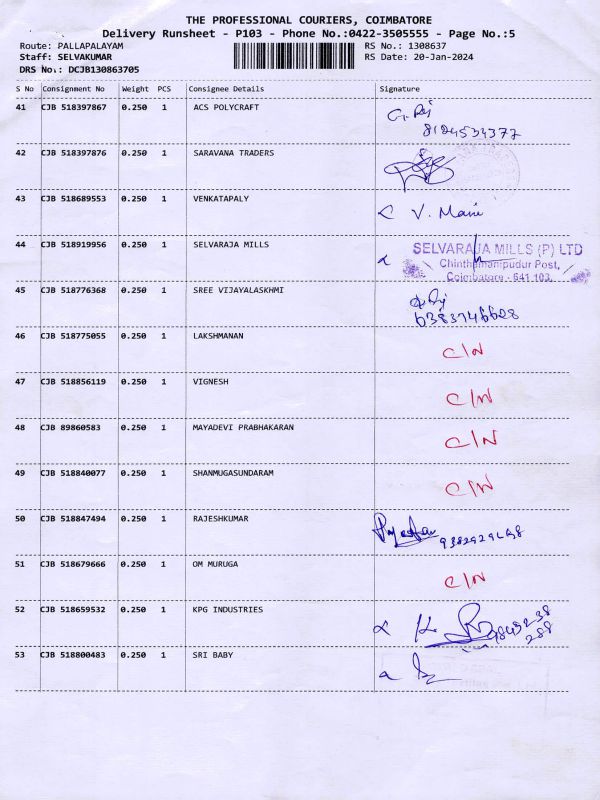 THE PROFESSIONAL COURIERS, COIMBATORE
Delivery Runsheet - P103 - Phone No.:0422-3505555 - Page No.:5
Route: PALLAPALAYAM RS No.: 1308637
Staff: SELVAKUMAR RS Date: 20-Jan-2024
DRS No.: DCJB130863705
S No Consignment No Weight PCS Consignee Details Signature
41 CJB 518397867 0.250 1 ACS POLYCRAFT
8124534377
42 CJB 518397876 0.250 1 SARAVANA TRADERS
43 CJB 518689553 0.250 1 VENKATAPALY V. Mani
44 CJB 518919956 0.250 1 SELVARAJA MILLS SELVARAJA MILLS (P) LTD
Chinthamanipudur Post,
Coimbatore - 641 103.
45 CJB 518776368 0.250 1 SREE VIJAYALASKHMI
6383746628
46 CJB 518775055 0.250 1 LAKSHMANAN C/N
47 CJB 518856119 0.250 1 VIGNESH C/N
48 CJB 89860583 0.250 1 MAYADEVI PRABHAKARAN C/N
49 CJB 518840077 0.250 1 SHANMUGASUNDARAM C/N
50 CJB 518847494 0.250 1 RAJESHKUMAR
51 CJB 518679666 0.250 1 OM MURUGA C/N
52 CJB 518659532 0.250 1 KPG INDUSTRIES 9843238
288
53 CJB 518800483 0.250 1 SRI BABY